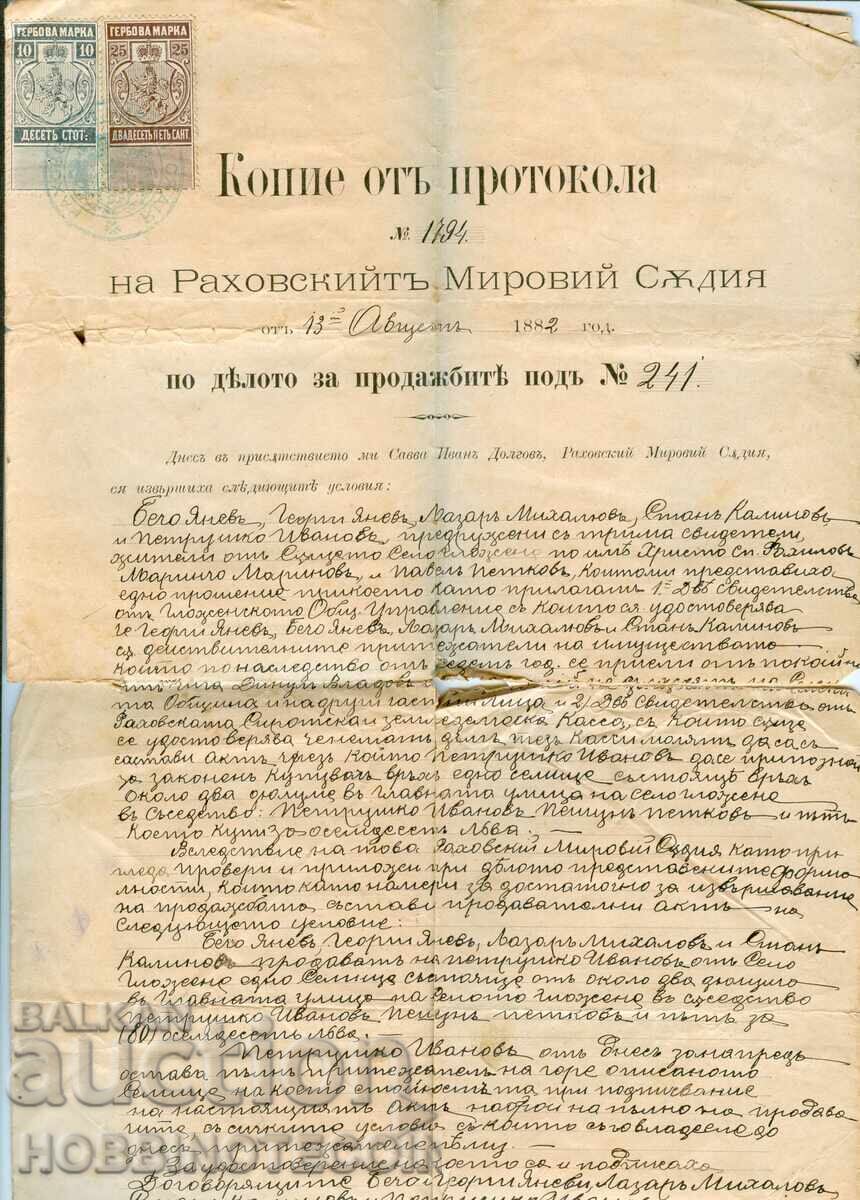 ГЕРБОВА МАРКА ГЕРБОВА МАРКА
10 10 25 25
ДЕСЕТЬ СТОТ: ДВАДЕСЕТЬ ПЕТЬ САНТ.
Копие отъ протокола
№ 1794.
на Раховскийтъ Мировий Сѫдия
отъ 13й Августъ 1882 год.
по дѣлото за продажбитѣ подъ № 241.
Днесъ въ присѫтствието ми Савва Иванъ Долговъ, Раховский Мировий Сѫдия,
ся извършиха слѣдующитѣ условия:
Бечо Яневъ, Георги Яневъ, Лазаръ Михалювъ, Станъ Калиновъ
и Петрушко Ивановъ, предружени съ трима свидетели,
жители отъ Сѫщето Село Гложене по имѣ Христо сп.
Маринчо Мариновъ, и Павелъ Петковъ, които ми представиха
едно прошение при което като прилагатъ 1й Двѣ Свидетелства
отъ Гложенското Общ. Управление съ които ся удостоверява
че Георги Яневъ, Бечо Яневъ, Лазаръ Михалювъ и Станъ Калиновъ
сѫ действителните притежатели на имуществата
които по наследство отъ седемъ год. се приели отъ покойни
тъ чича Динулъ Владовъ на Селск
та Община и на други частни лица и 2/ Двѣ Свидетелства отъ
Раховската Сиротска и земледелска Касса, съ които сѫщо
се удостоверява че нематъ дългъ тезъ Касси могатъ да са съ
състави актъ чрезъ който Петрушко Ивановъ да се припознай
за законенъ купувачъ връхъ едно селище състояще връхъ
около два дюлюме въ главната улица на село Гложене
въ съседство: Петрушко Ивановъ Пешунъ Петковъ и пѫтъ
което купи за осемдесетъ лѣва. —
Вследствие на това Раховский Мировий Сѫдия като при
гледа, провери и приложи при дѣлото представените формал
ности, които като намери за достаточно за извършвание
на продажбата, състави продавателни актъ на
следующето условие:
Бечо Яневъ, Георги Яневъ, Лазаръ Михаловъ и Станъ
Калиновъ продаватъ на Петрушко Ивановъ отъ Село
Гложене едно Селище състояще отъ около два дюлюма
въ главната улица на селото Гложене въ съседство
Петрушко Ивановъ Пешунъ Петковъ и пѫтъ за
(80) осемдесетъ лѣва. —
Петрушко Ивановъ отъ днесъ за напредъ
остава пълнъ притежатель на горе описаното
Селище, на което стойностьта при подписвание
на настоящиятъ актъ наброи на пълно на продава
чите съ сичките условия съ които съ го владеле до
днесъ
За удостоверение на което са и подписаха
Договорящите Бечо и Георги Яневи, Лазаръ Михаловъ
BALKAN
auction
HOBBY